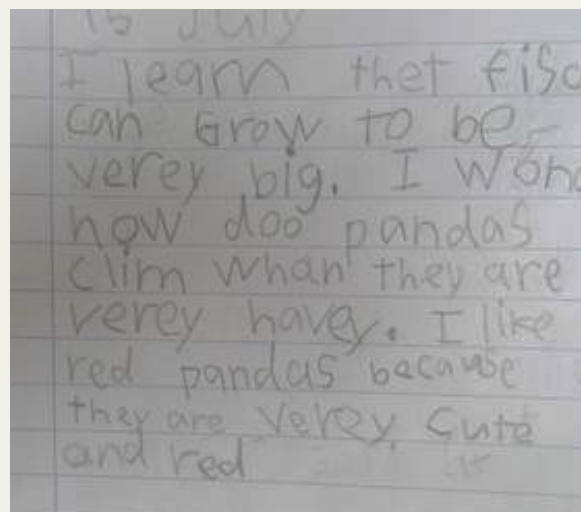 15 July
I learn thet fisc
can Grow to be
verey big. I Wond
how doo pandas
Clim whan they are
verey havey. I like
red pandas because
they are verey Cute
and red